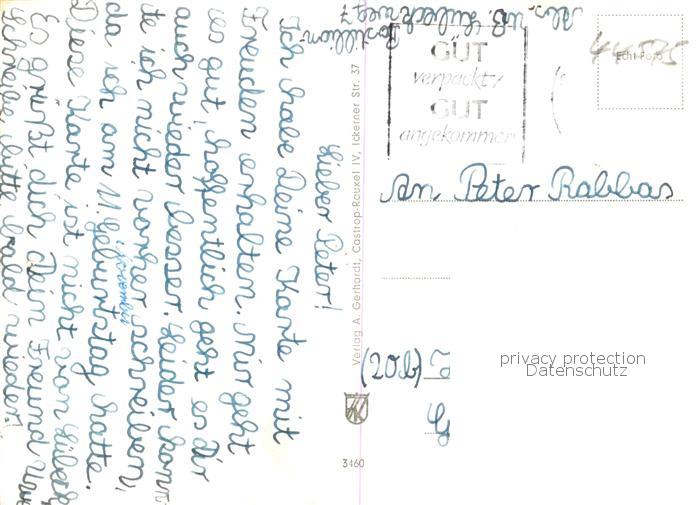 Lieber Peter!
Ich habe Deine Karte mit
Freuden erhalten. Mir geht
es gut, hoffentlich geht es dir
auch wieder besser. Leider konn
te ich nicht vorher schreiben,
da ich am 11. November Geburtstag hatte.
Diese Karte ist nicht von Lübeck
Es grüßt dich Dein Freund Uwe
Schreibe bitte bald wieder!
Abs.
Lübeck
Verlag A. Gerhardt, Castrop-Rauxel IV, Ickerner Str. 37
3460
GUT
verpackt,
GUT
angekommen
Echt Foto
An Peter Rabbas
(20b)
privacy protection
Datenschutz